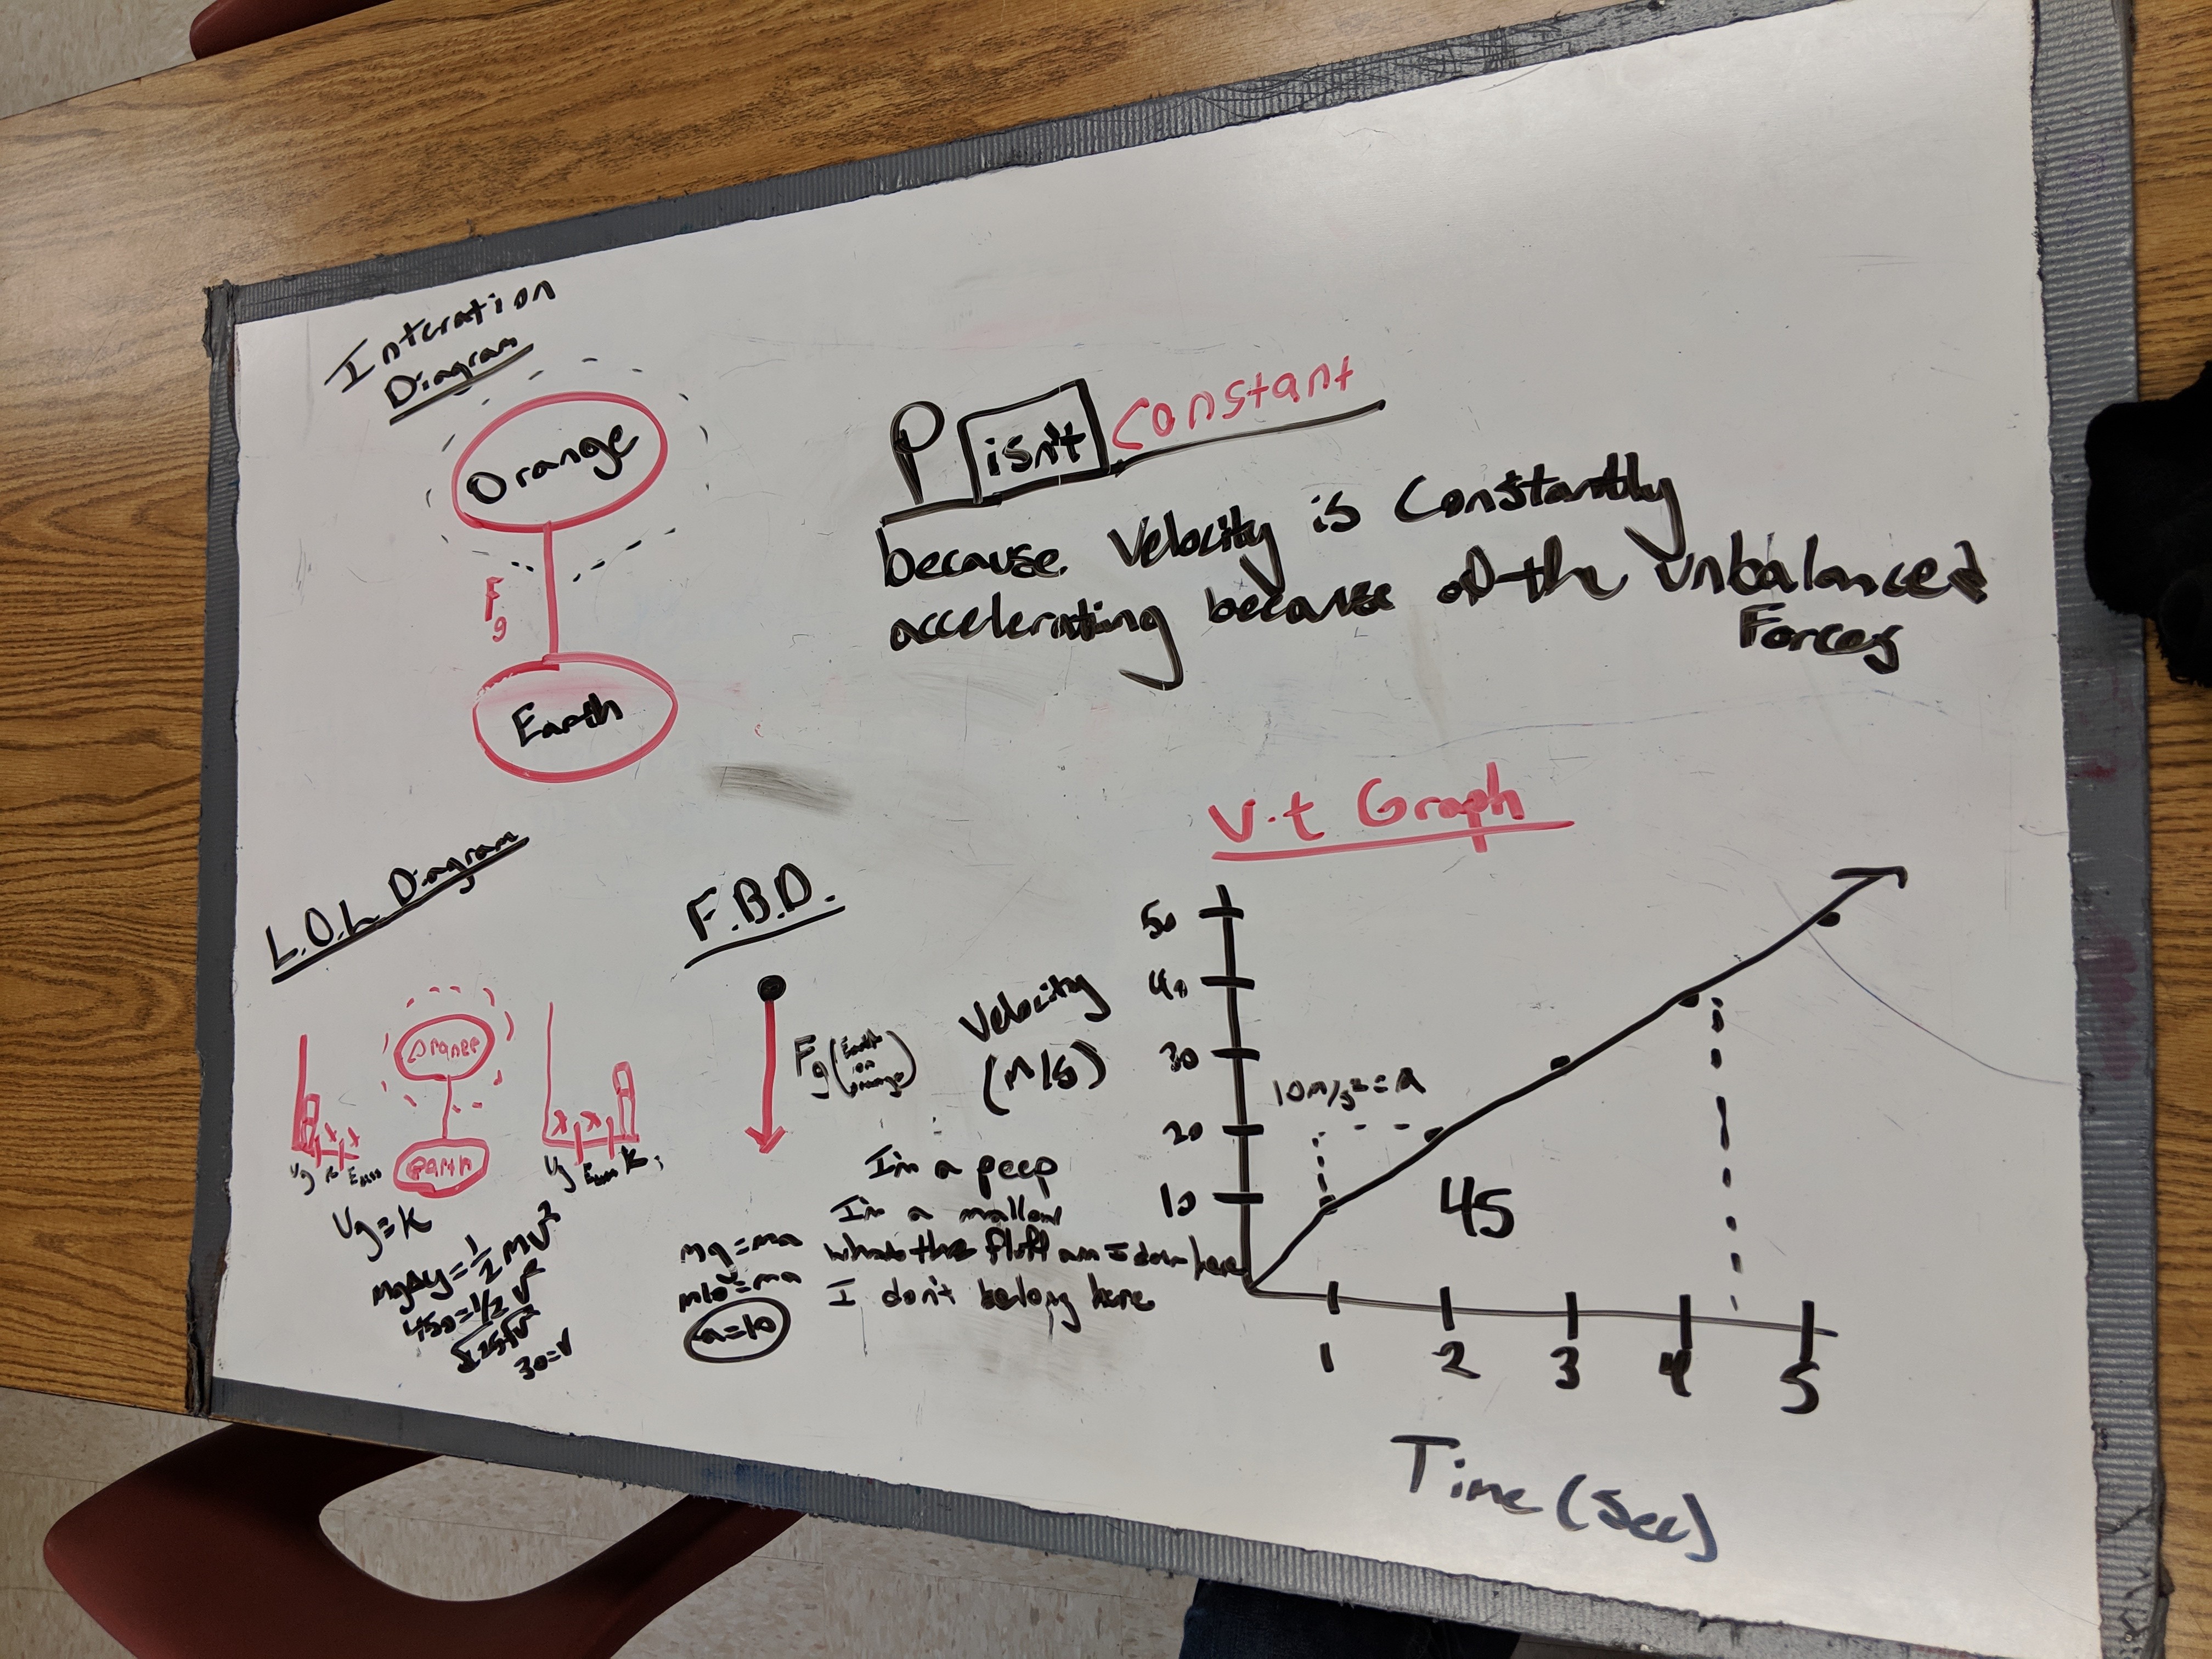 Interation
Diagram
Orange
F
g
Earth
P isn't Constant
because Velocity is Constantly
accelerating because of the unbalanced
Forces
L.O.L Diagram
Orange
Earth
Ug K Ediss
Ug Ediss K
Ug=K
mgΔy=1/2 mv²
450=1/2 v²
30=v
F.B.D.
Fg (Earth
on
orange)
mg=ma
m10=ma
a=10
I'm a peep
I'm a mallow
what the fluff am I doin here
I don't belong here
V.t Graph
Velocity
(m/s)
50
40
30
20
10
10m/s²=a
45
1 2 3 4 5
Time (sec)